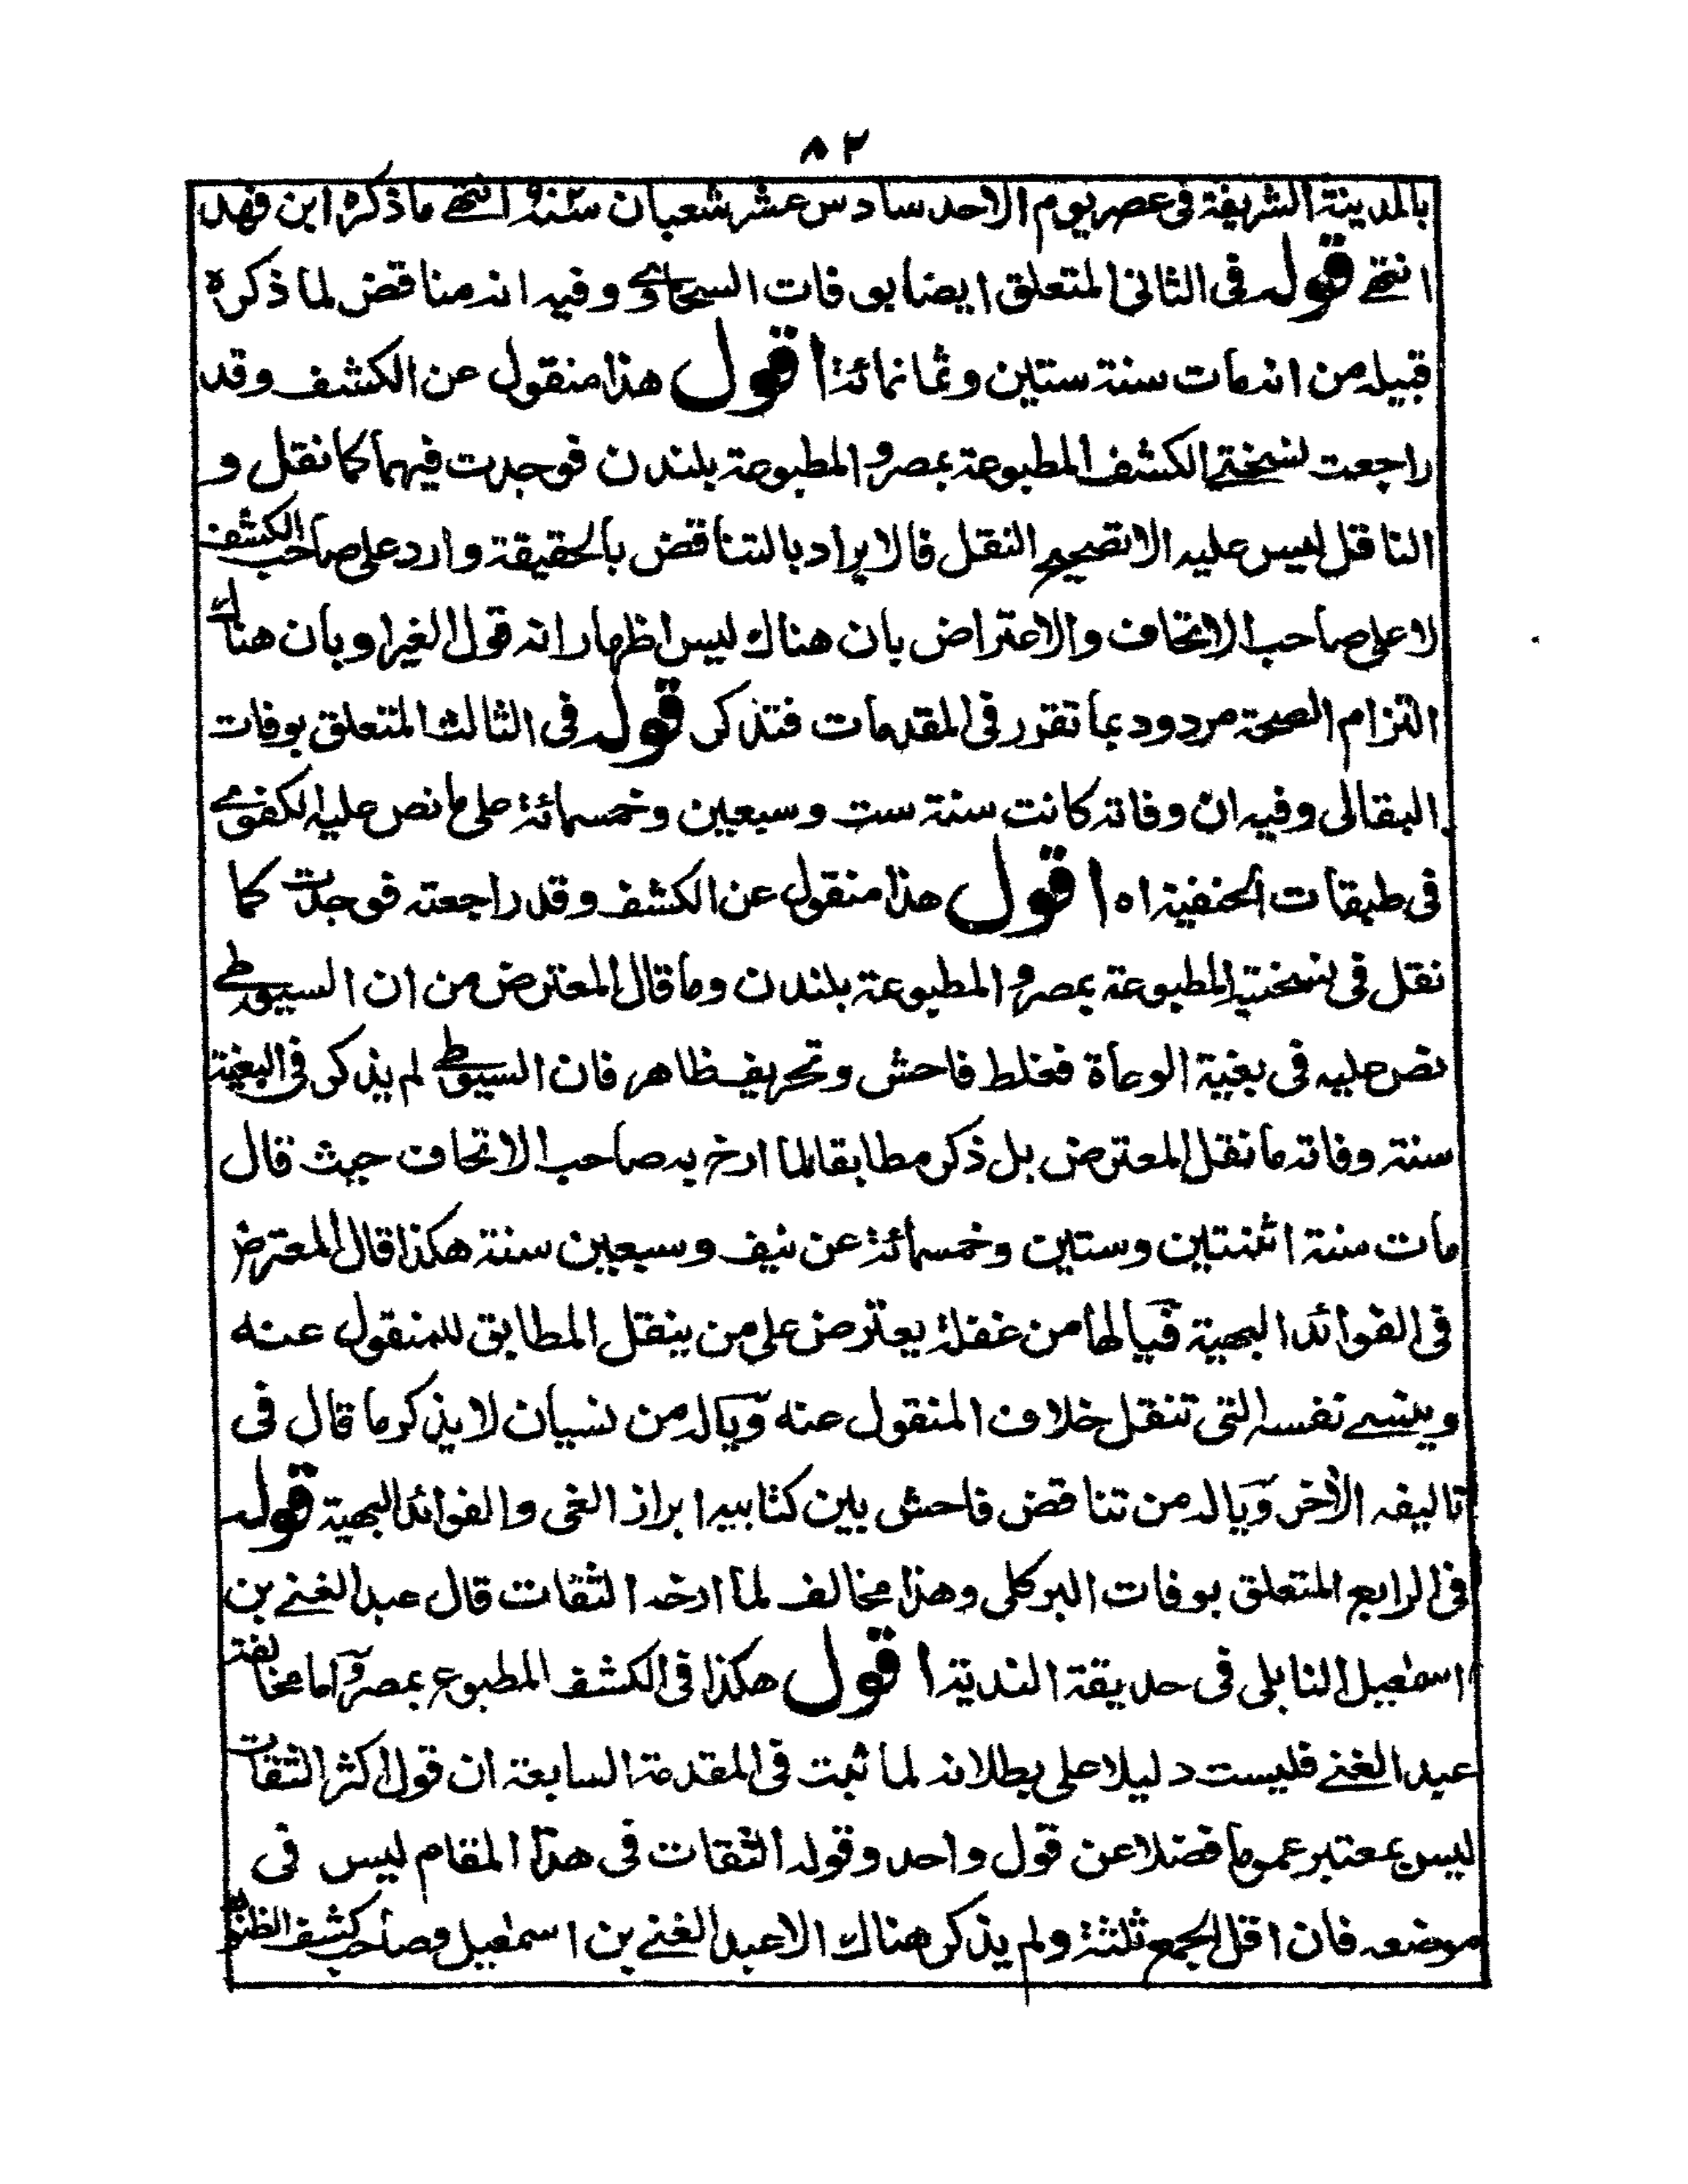 ٨٢
بالمدينة الشريفة فى عصر يوم الاحد سادس عشر شعبان سنة انتهى ما ذكره ابن فهد
انتهى قوله فى الثانى المتعلق ايضا بوفات السخاوى وفيه انه مناقض لما ذكره
قبيله من انه مات سنة ستين وثمانمائة اقول هذا منقول عن الكشف وقد
راجعت نسختى الكشف المطبوعة بمصر و المطبوعة بلندن فوجدت فيهما كما نقل و
الناقل ليس عليه الا تصحيح النقل فالايراد بالتناقض بالحقيقة وارد على صاحب الكشف
لا على صاحب الاتحاف والاعتراض بان هناك ليس اظهار انه قول الغير او بان هناك
التزام الصحة مردود بما تقرر فى المقدمات فتذكر قوله فى الثالث المتعلق بوفات
البقالى وفيه ان وفاته كانت سنة ست وسبعين وخمسمائة على ما نص عليه الكفوى
فى طبقات الحنفية اه اقول هذا منقول عن الكشف وقد راجعته فوجدت كما
نقل فى نسختيه المطبوعة بمصر و المطبوعة بلندن وما قال المعترض من ان السيوطى
نص عليه فى بغية الوعاة فغلط فاحش وتحريف ظاهر فان السيوطى لم يذكر فى البغية
سنة وفاته ما نقل المعترض بل ذكر مطابقا لما ارخ به صاحب الاتحاف حيث قال
مات سنة اثنتين وستين وخمسمائة عن نيف وسبعين سنة هكذا قال المعترض
فى الفوائد البهية فيا لها من غفلة يعترض على من ينقل المطابق للمنقول عنه
وينسى نفسه التى تنقل خلاف المنقول عنه ويا له من نسيان لا يذكر ما قال فى
تاليفه الآخر ويا له من تناقض فاحش بين كتابيه ابراز الغى والفوائد البهية قوله
فى الرابع المتعلق بوفات البركلى وهذا مخالف لما ارخه الثقات قال عبد الغنى بن
اسمعيل النابلى فى حديقة الندية اقول هكذا فى الكشف المطبوع بمصر واما مخالفة
عبد الغنى فليست دليلا على بطلانه لما ثبت فى المقدمة السابعة ان قول اكثر الثقات
ليس بمعتبر عموما فضلا عن قول واحد وقوله الثقات فى هذا المقام ليس فى
موضعه فان اقل الجمع ثلثة ولم يذكر هناك الا عبد الغنى بن اسمعيل وصاحب كشف الظنون